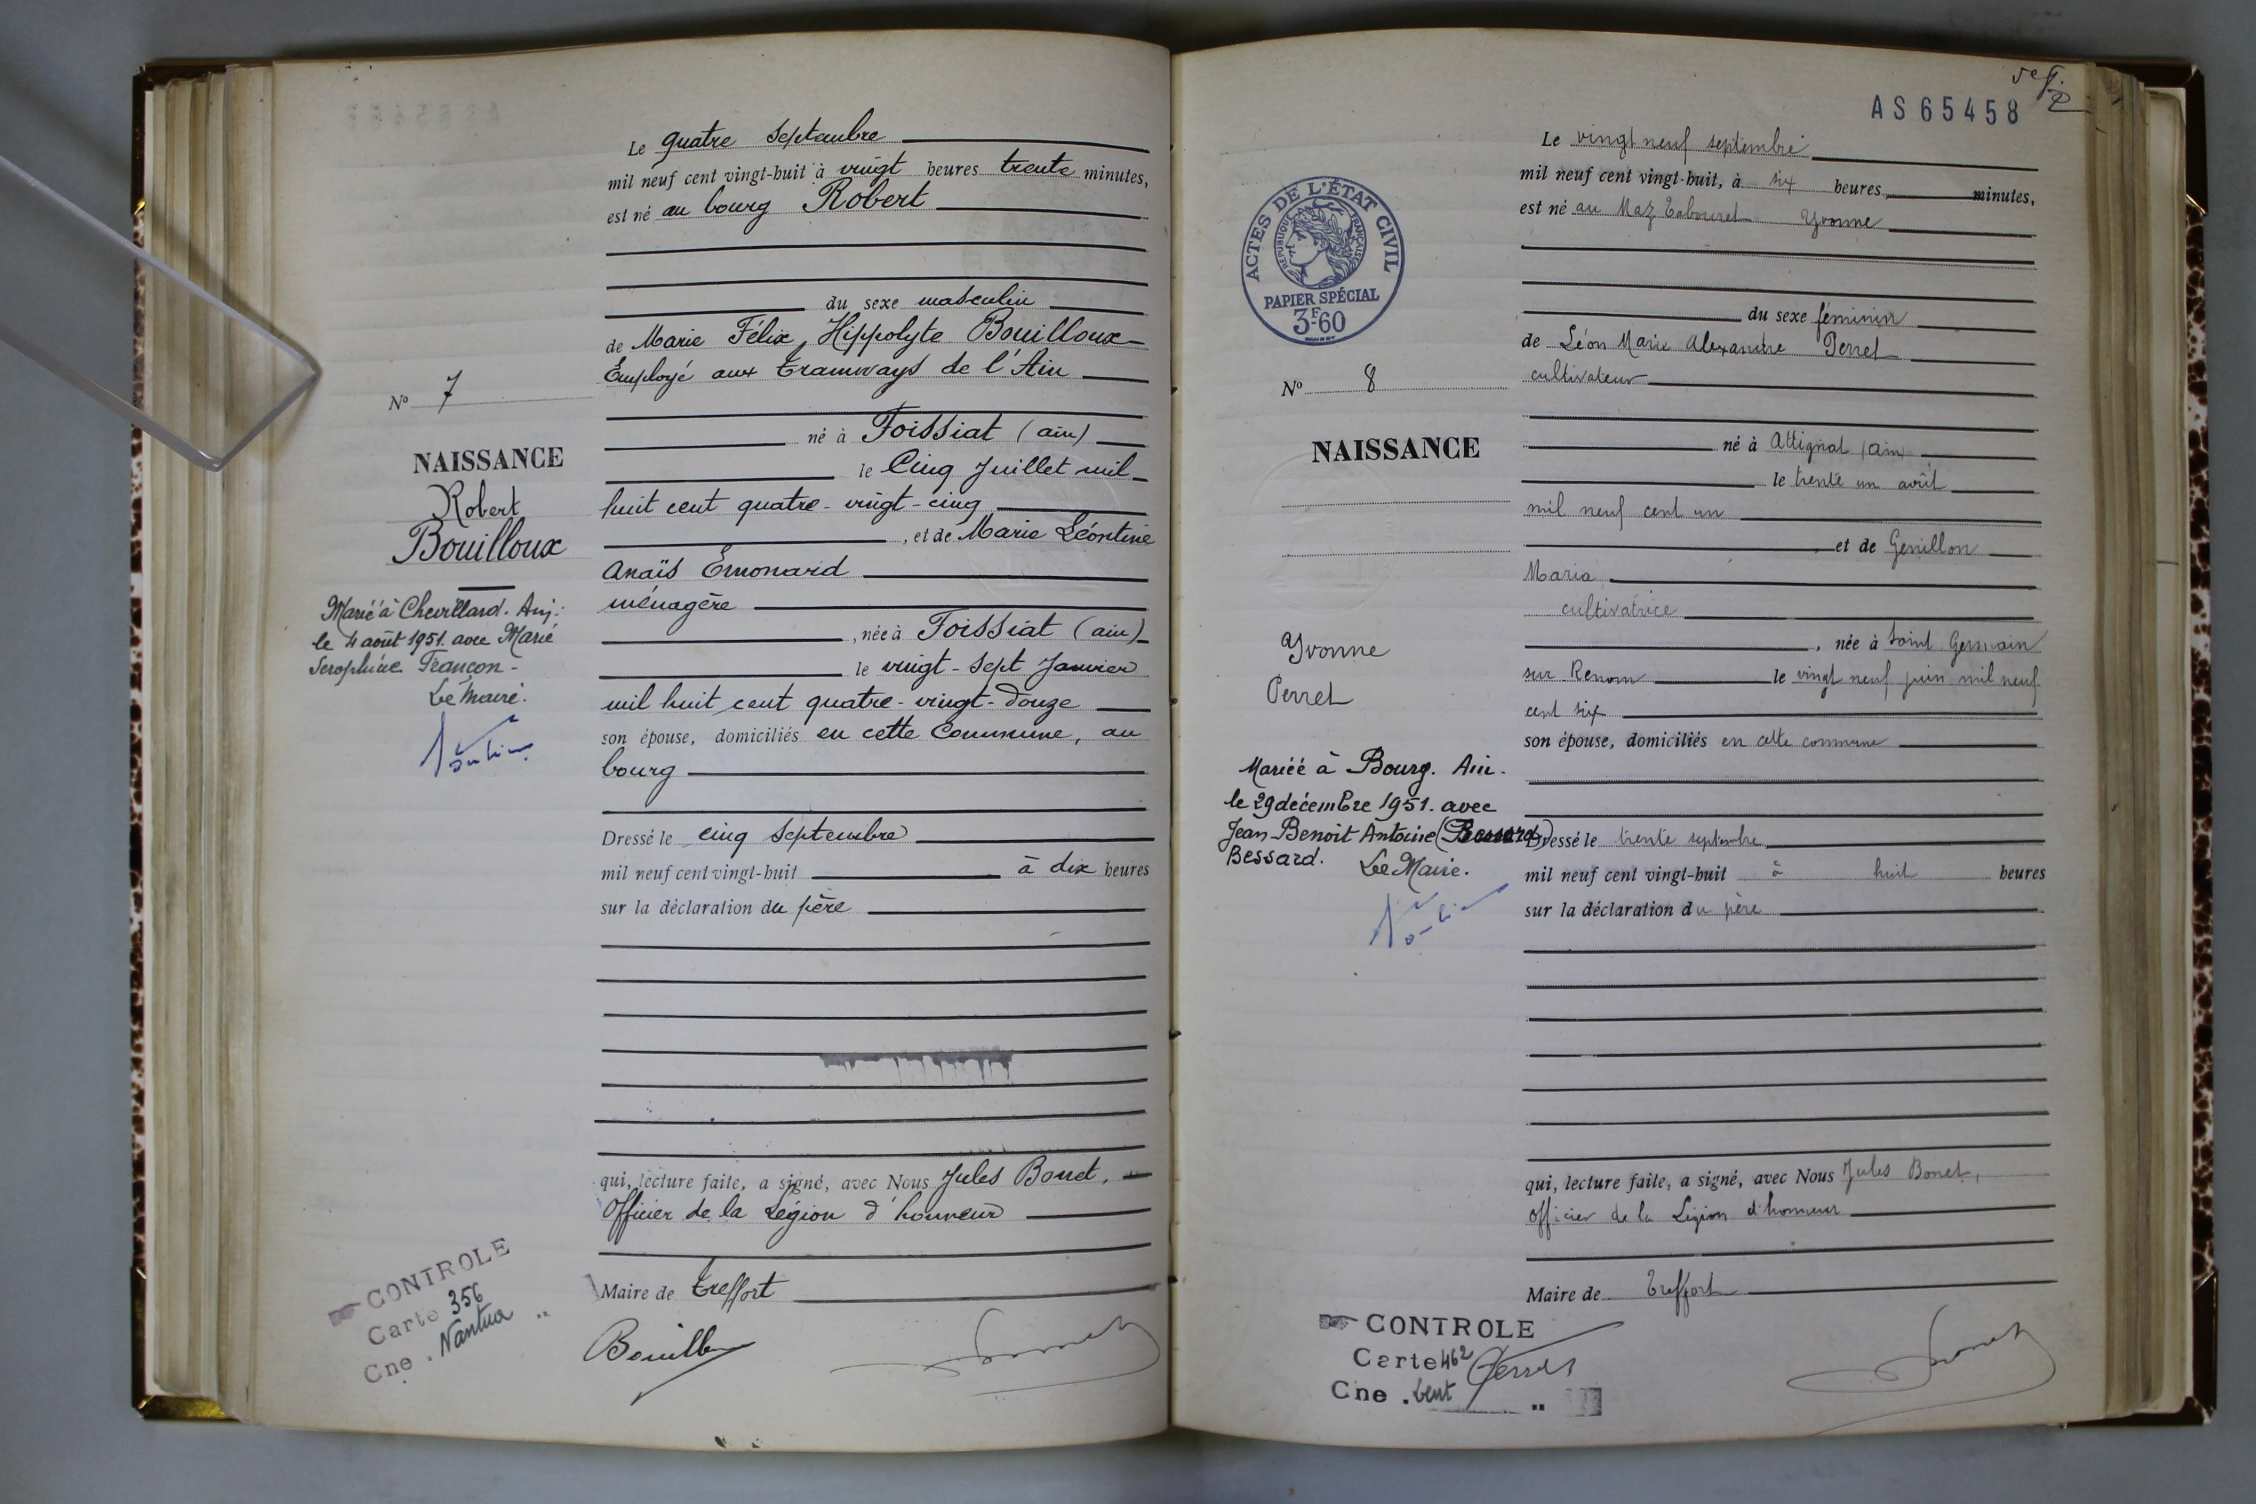 Le quatre Septembre
mil neuf cent vingt-huit à vingt heures trente minutes,
est né au bourg Robert
du sexe masculin
de Marie Félix Hippolyte Bouilloux
Employé aux tramways de l'Ain
né à Foissiat (ain)
le Cinq Juillet mil
huit cent quatre-vingt-cinq
, et de Marie Léontine
Anaïs Emonard
ménagère
, née à Foissiat (ain)
le vingt-sept Janvier
mil huit cent quatre-vingt-douze
son épouse, domiciliés en cette Commune, au
bourg
Dressé le cinq Septembre
mil neuf cent vingt-huit à dix heures
sur la déclaration du père
qui, lecture faite, a signé, avec Nous Jules Bonet,
Officier de la Légion d'honneur
Maire de Treffort
Bouilloux
Nº 7
NAISSANCE
Robert
Bouilloux
Marié à Chevillard. Ain.
le 4 août 1951. avec Marie
Seraphine Françon -
Le Maire.
CONTROLE
Carte 356
Cne. Nantua "
AS65458
Le vingt neuf septembre
mil neuf cent vingt-huit, à six heures, minutes,
est né au Maz Tabouret Yvonne
du sexe féminin
de Léon Marie Alexandre Perret
cultivateur
né à Attignat (ain)
le trente un avril
mil neuf cent un
et de Genillon
Maria
cultivatrice
, née à Saint Germain
sur Renom le vingt neuf juin mil neuf
cent six
son épouse, domiciliés en cette commune
Dressé le trente septembre
mil neuf cent vingt-huit à huit heures
sur la déclaration du père
qui, lecture faite, a signé, avec Nous Jules Bonet,
Officier de la Légion d'honneur
Maire de Treffort
Perret
ACTES DE L'ÉTAT CIVIL
RÉPUBLIQUE FRANÇAISE
PAPIER SPÉCIAL
3F60
Nº 8
NAISSANCE
Yvonne
Perret
Mariée à Bourg. Ain.
le 29 décembre 1951. avec
Jean Benoit Antoine (Bessard)
Bessard. Le Maire.
CONTROLE
Carte 462
Cne. Lent "